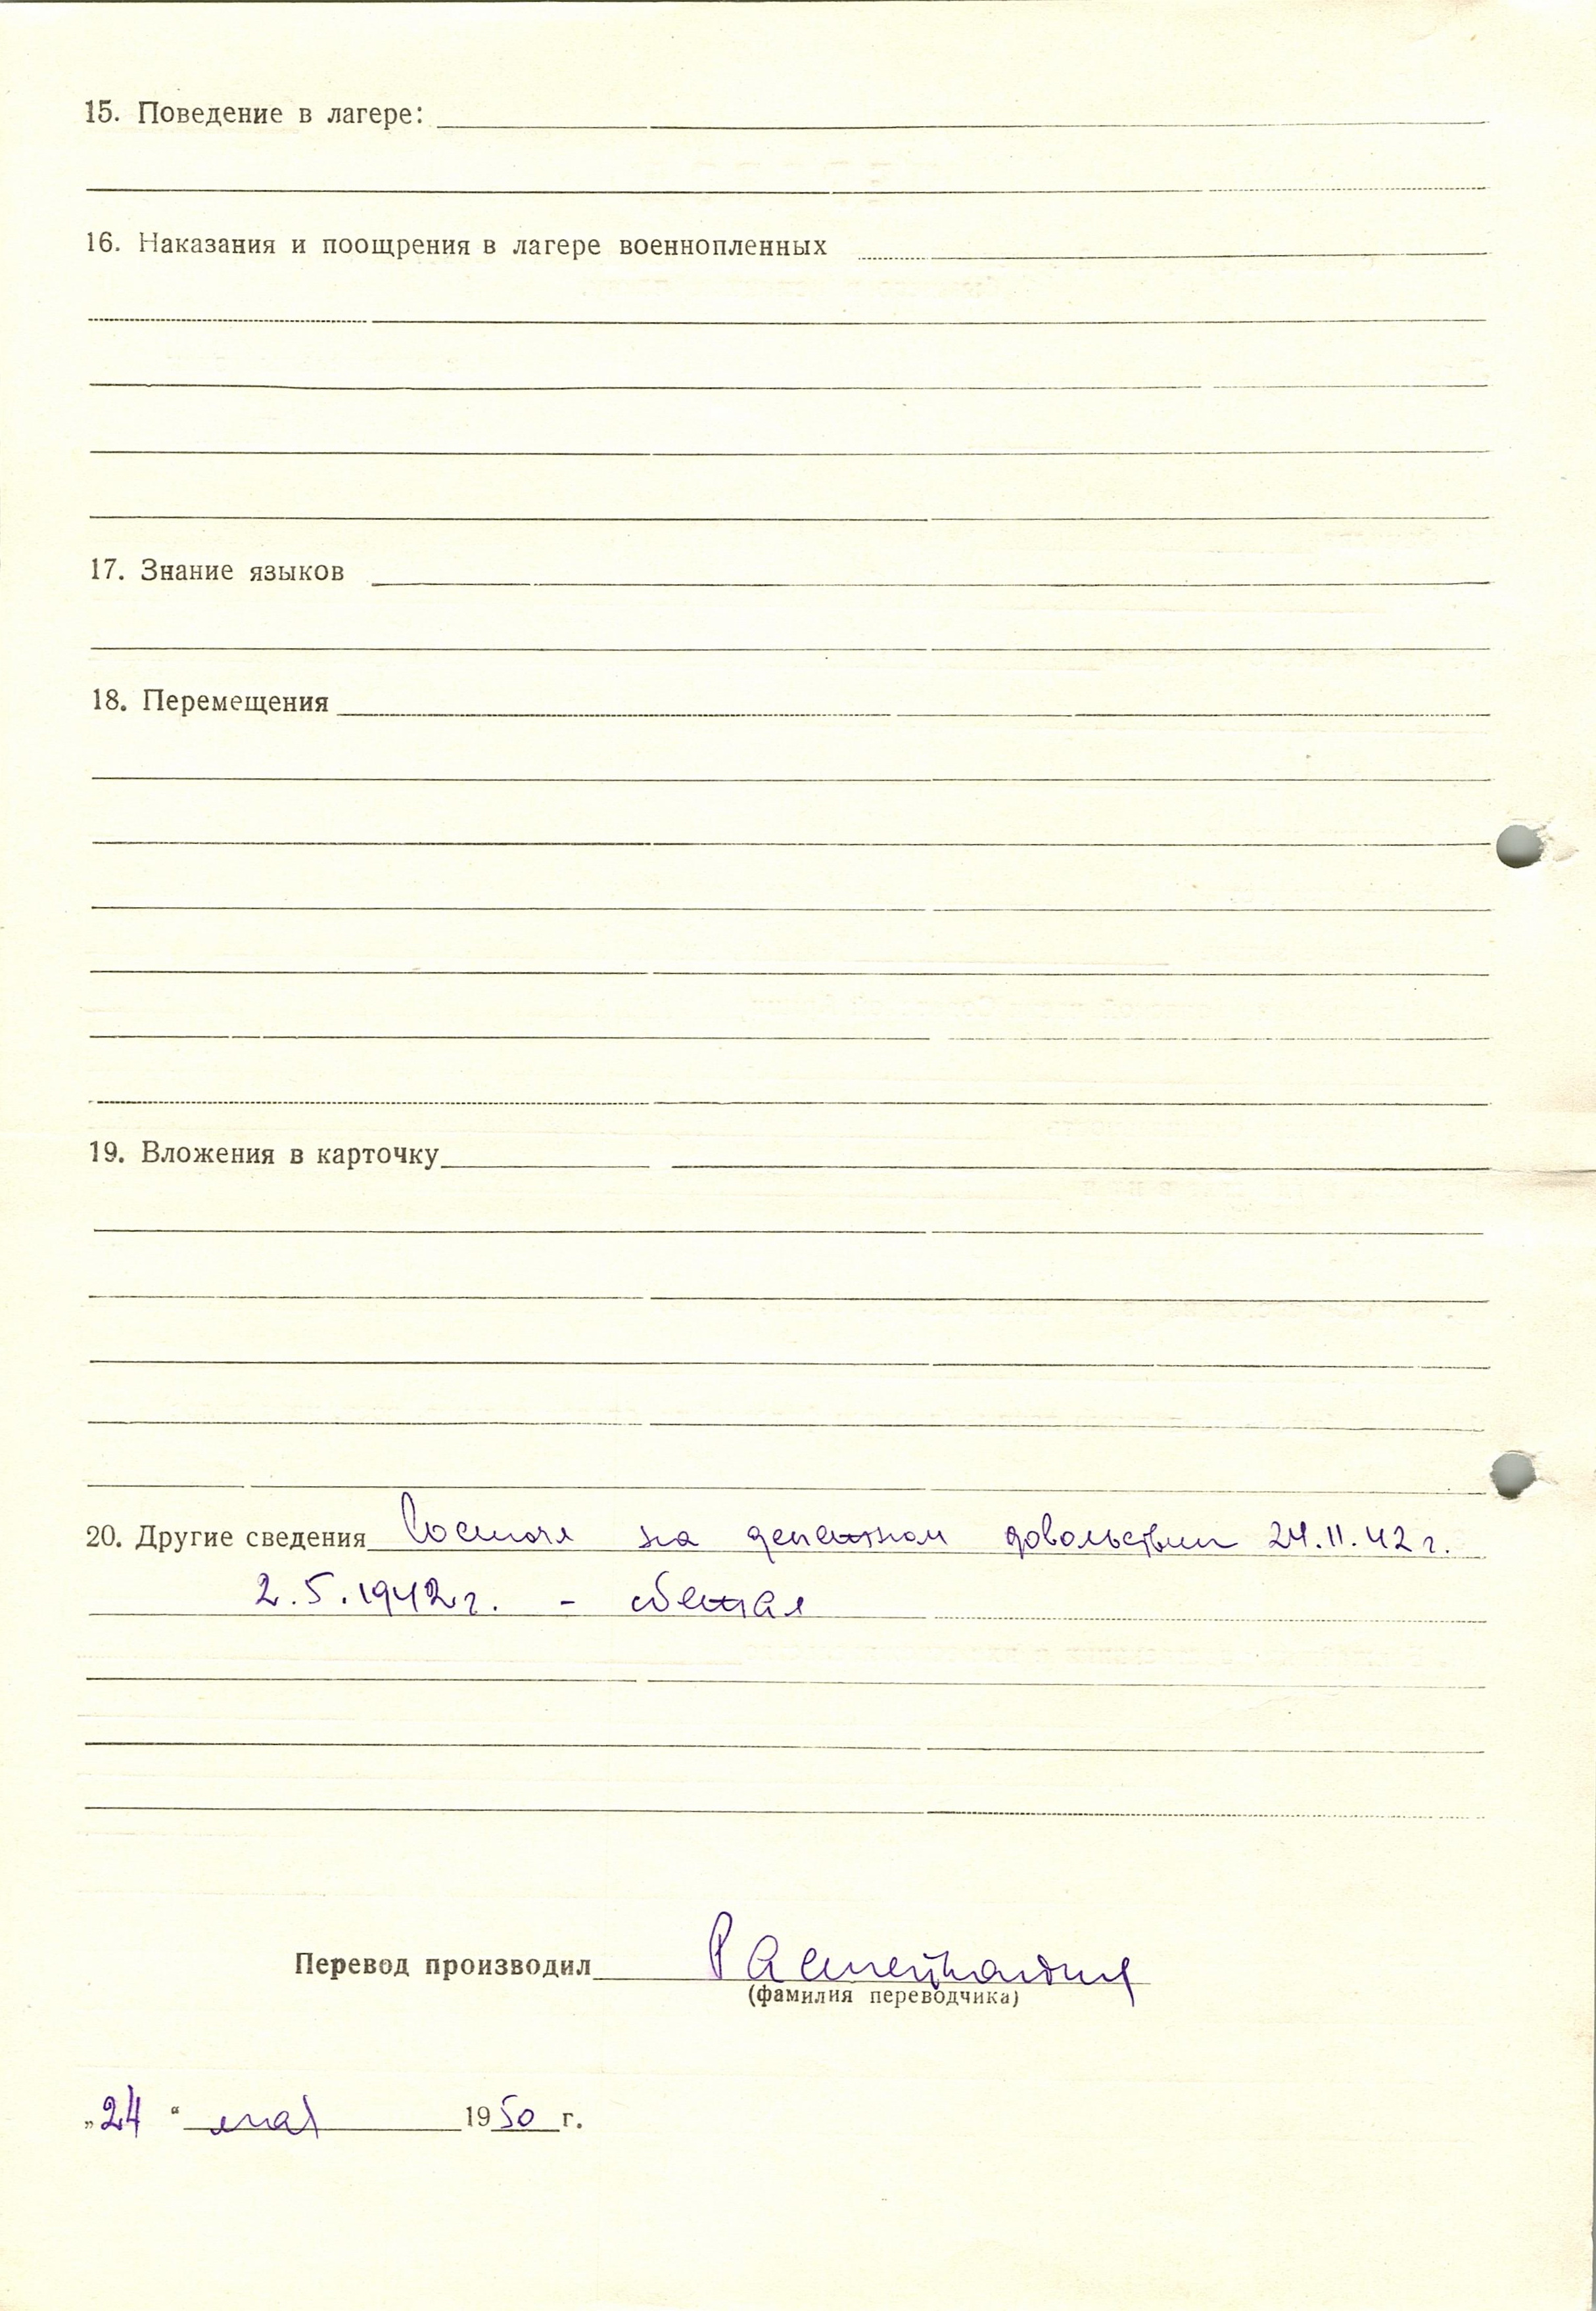 15. Поведение в лагере:
16. Наказания и поощрения в лагере военнопленных
17. Знание языков
18. Перемещения
19. Вложения в карточку
20. Другие сведения Состоял на денежном довольствии 24.11.42 г.
2.5.1942 г. - сбежал
Перевод производил
(фамилия переводчика)
„24“ мая 1950 г.